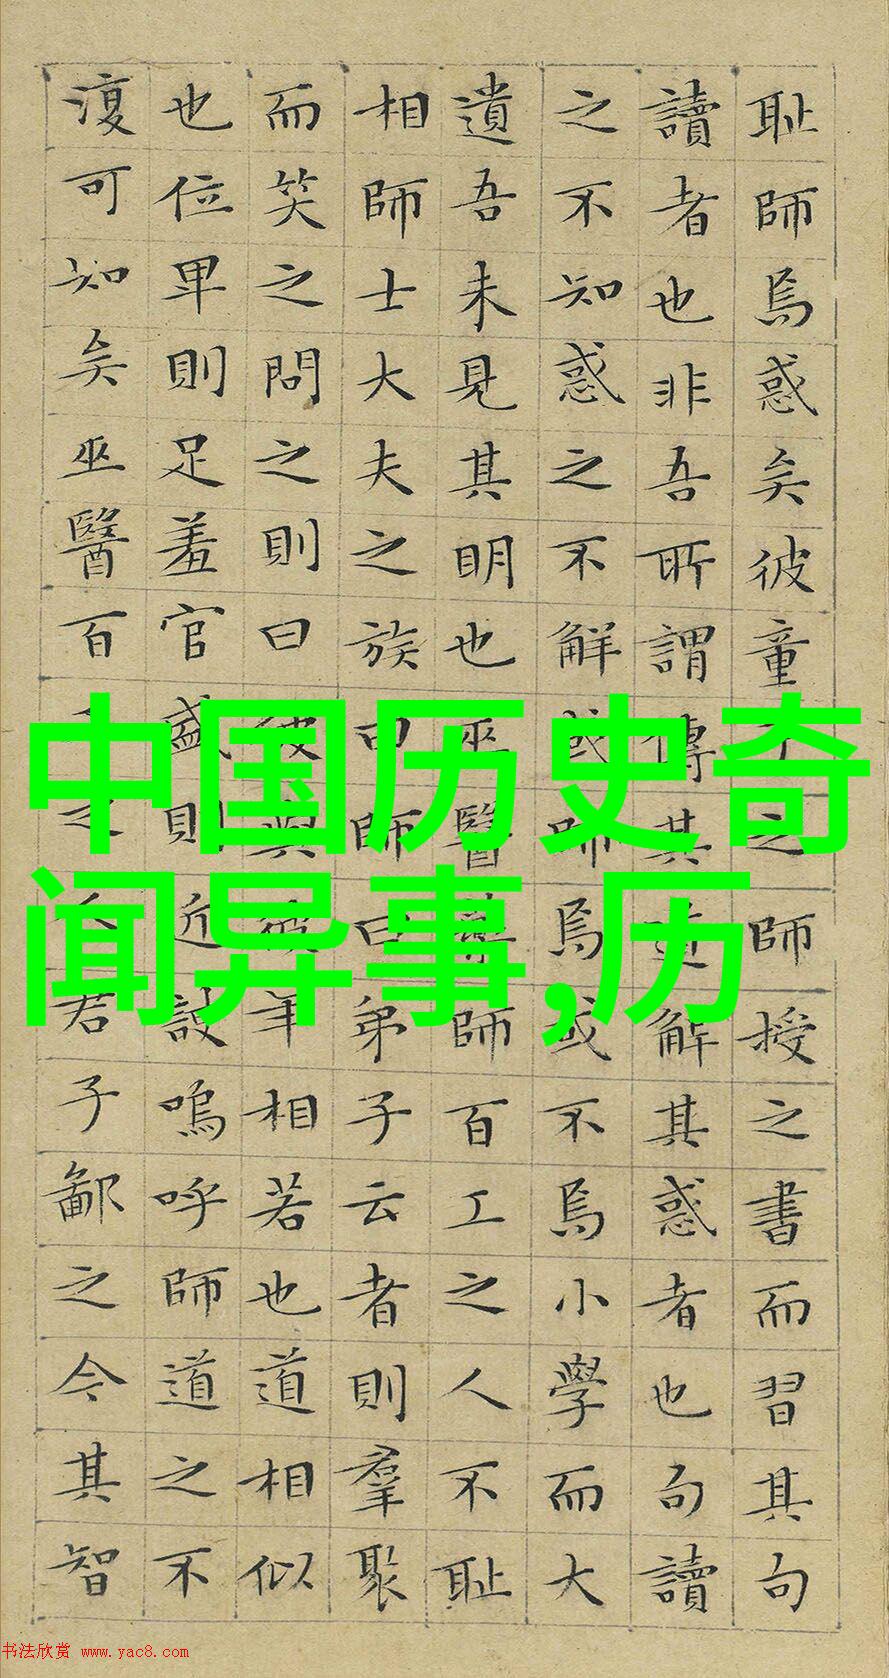 耻師焉惑矣彼童之師授之書而習其句
讀者也非吾所謂傳其道解其惑者也句讀
之不知惑之不解或師焉或不焉小學而大
遺吾未見其明也巫醫樂師百工之人不耻
相師士大夫之族曰師曰弟子云者則羣聚
而笑之問之則曰彼與彼年相若也道相似
也位卑則足羞官盛則近諛嗚呼師道之不
復可知矣巫醫百之君子鄙之今其智
中国历史奇
闻异事,历
书法欣赏 www.yac8.com